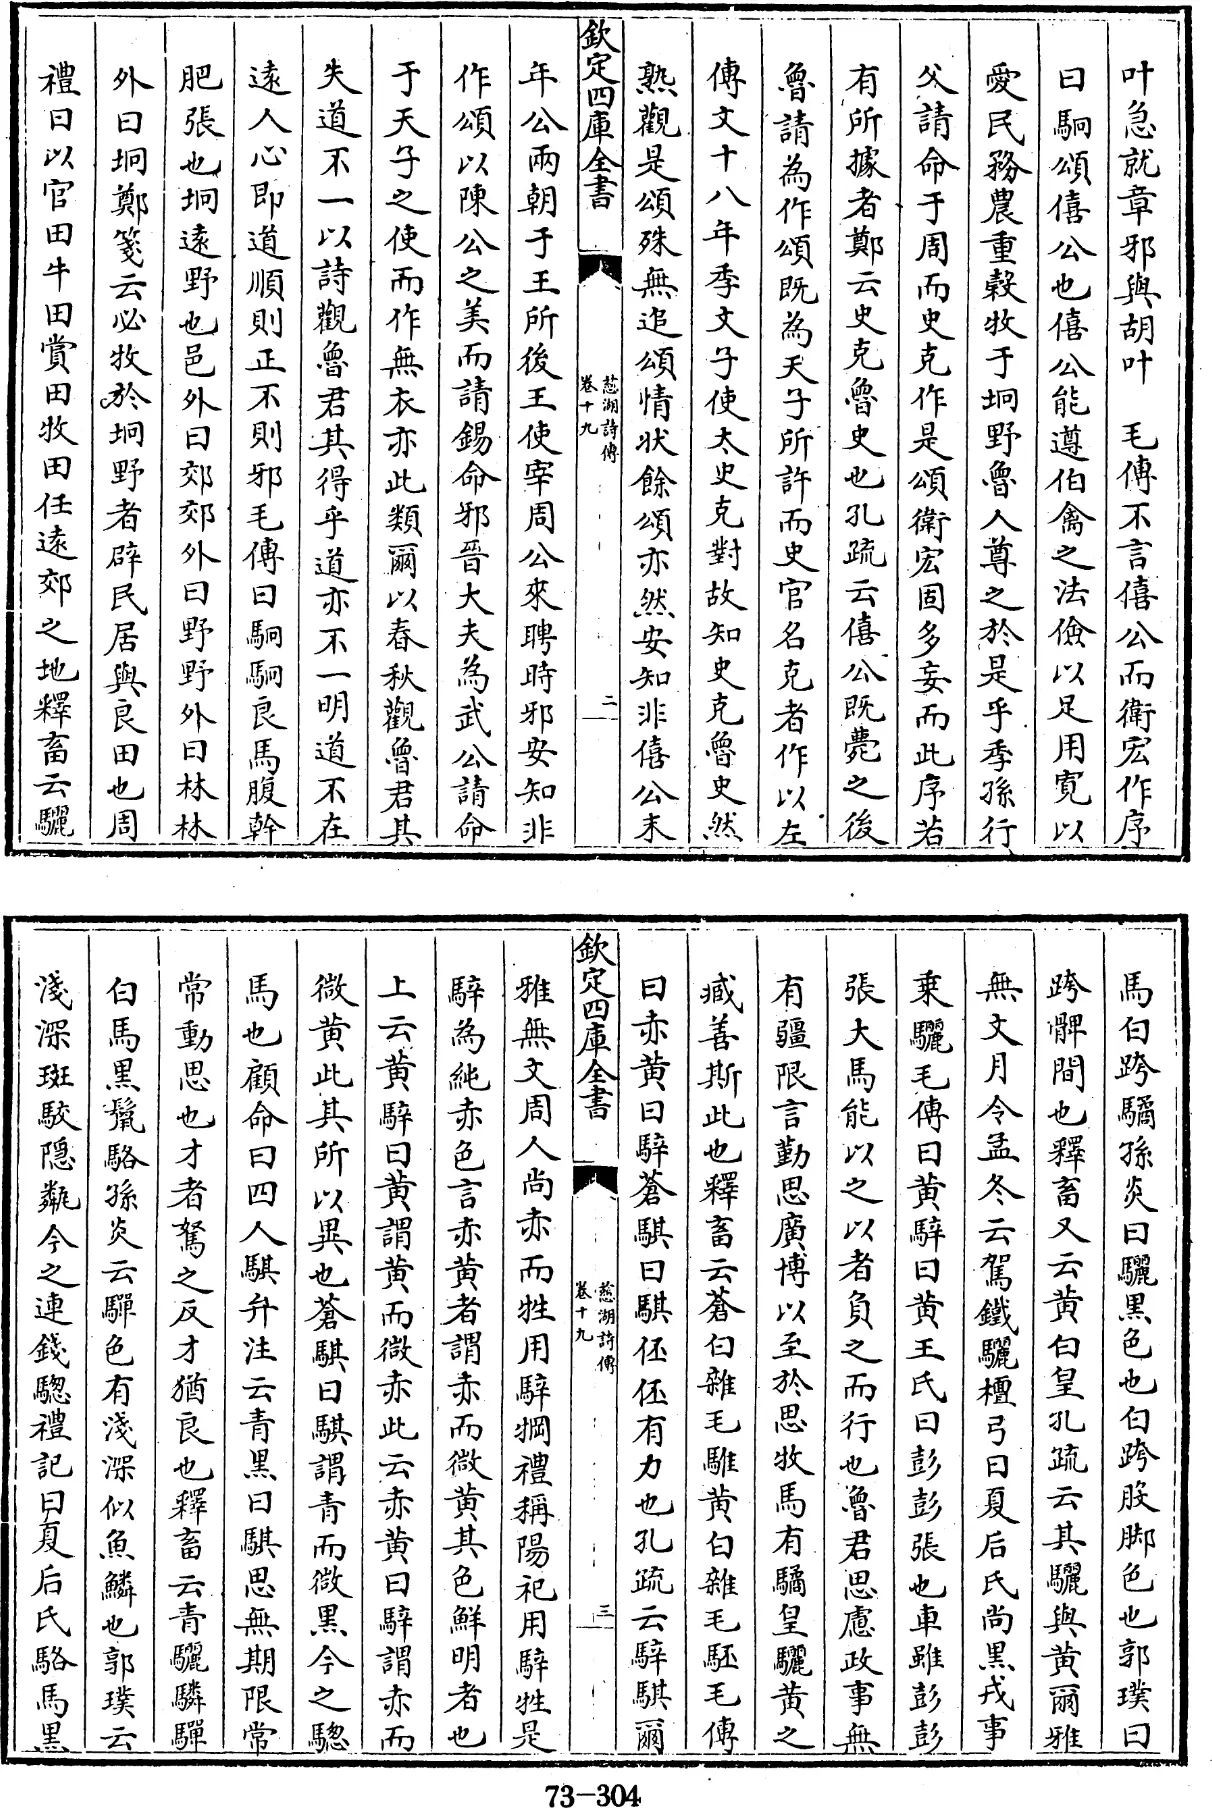 叶急就章邪與胡叶　毛傳不言僖公而衛宏作序
曰駉頌僖公也僖公能遵伯禽之法儉以足用寛以
愛民務農重穀牧于坰野魯人尊之於是乎季孫行
父請命于周而史克作是頌衛宏固多妄而此序若
有所據者鄭云史克魯史也孔疏云僖公既薨之後
魯請為作頌既為天子所許而史官名克者作以左
傳文十八年季文子使太史克對故知史克魯史然
熟觀是頌殊無追頌情狀餘頌亦然安知非僖公末
欽定四庫全書
慈湖詩傳
卷十九
二
年公兩朝于王所後王使宰周公來聘時邪安知非
作頌以陳公之美而請錫命邪晉大夫為武公請命
于天子之使而作無衣亦此類爾以春秋觀魯君其
失道不一以詩觀魯君其得乎道亦不一明道不在
逺人心即道順則正不則邪毛傳曰駉駉良馬腹幹
肥張也坰逺野也邑外曰郊郊外曰野野外曰林林
外曰坰鄭箋云必牧於坰野者辟民居與良田也周
禮曰以官田牛田賞田牧田任逺郊之地釋畜云驪
馬白跨驈孫炎曰驪黒色也白跨股脚色也郭璞曰
跨髀間也釋畜又云黄白皇孔疏云其驪與黄爾雅
無文月令孟冬云駕鐵驪檀弓曰夏后氏尚黒戎事
乗驪毛傳曰黄騂曰黄王氏曰彭彭張也車雖彭彭
張大馬能以之以者負之而行也魯君思慮政事無
有疆限言勤思廣博以至於思牧馬有驈皇驪黄之
臧善斯此也釋畜云蒼白雜毛騅黄白雜毛駓毛傳
曰赤黄曰騂蒼騏曰騏伾伾有力也孔疏云騂騏爾
欽定四庫全書
慈湖詩傳
卷十九
三
雅無文周人尚赤而牲用騂犅禮稱陽祀用騂牲是
騂為純赤色言赤黄者謂赤而微黄其色鮮明者也
上云黄騂曰黄謂黄而微赤此云赤黄曰騂謂赤而
微黄此其所以異也蒼騏曰騏謂青而微黒今之驄
馬也顧命曰四人騏弁注云青黒曰騏思無期限常
常動思也才者駑之反才猶良也釋畜云青驪驎驒
白馬黒鬛駱孫炎云驒色有淺深似魚鱗也郭璞云
淺深斑駮隠粼今之連錢驄禮記曰夏后氏駱馬黒
73-304